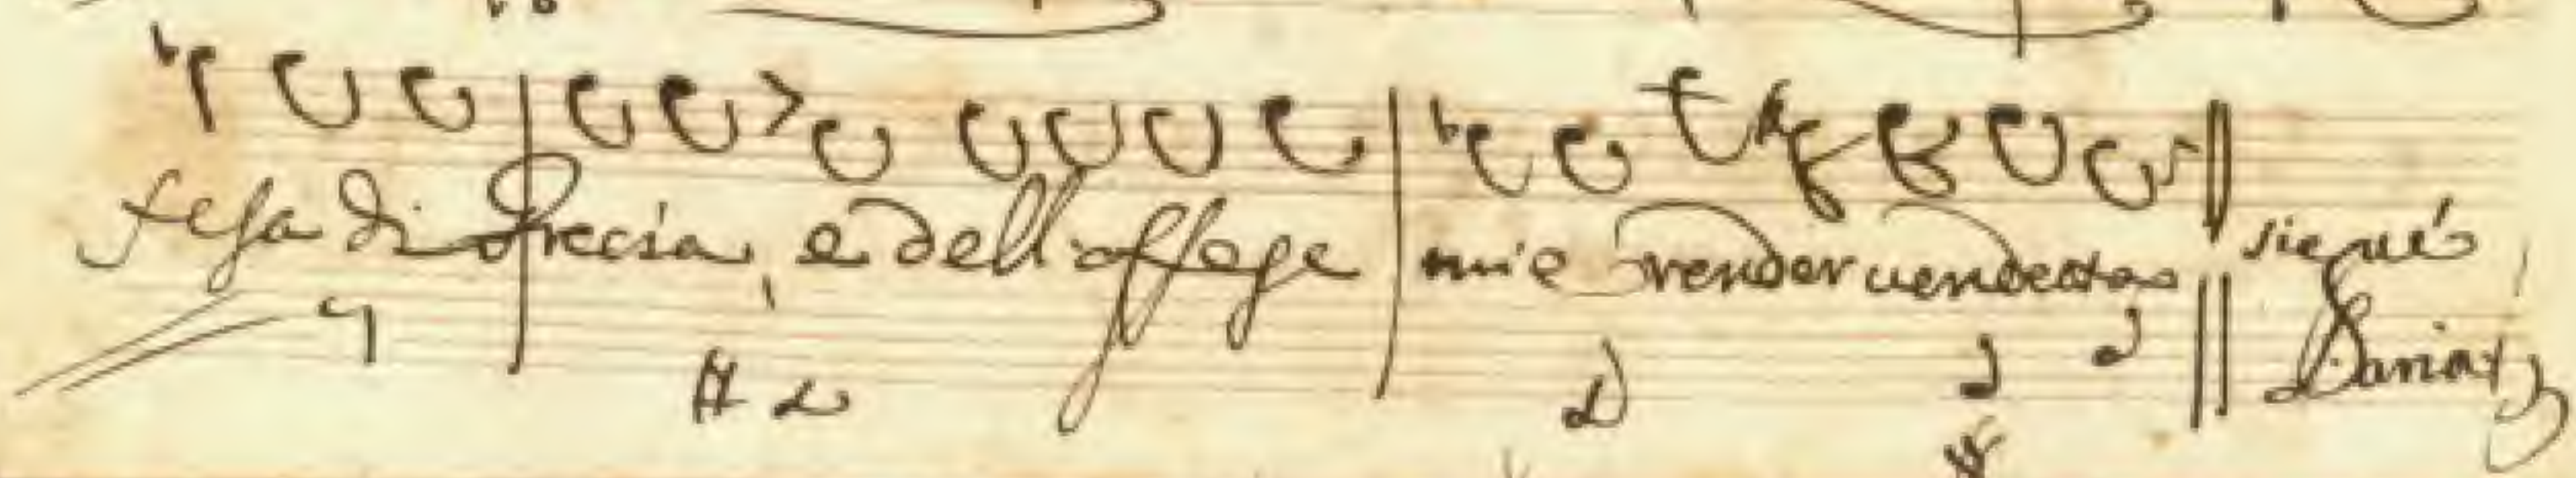 fesa di Grecia, e dell'offese mie render uendetta siegué